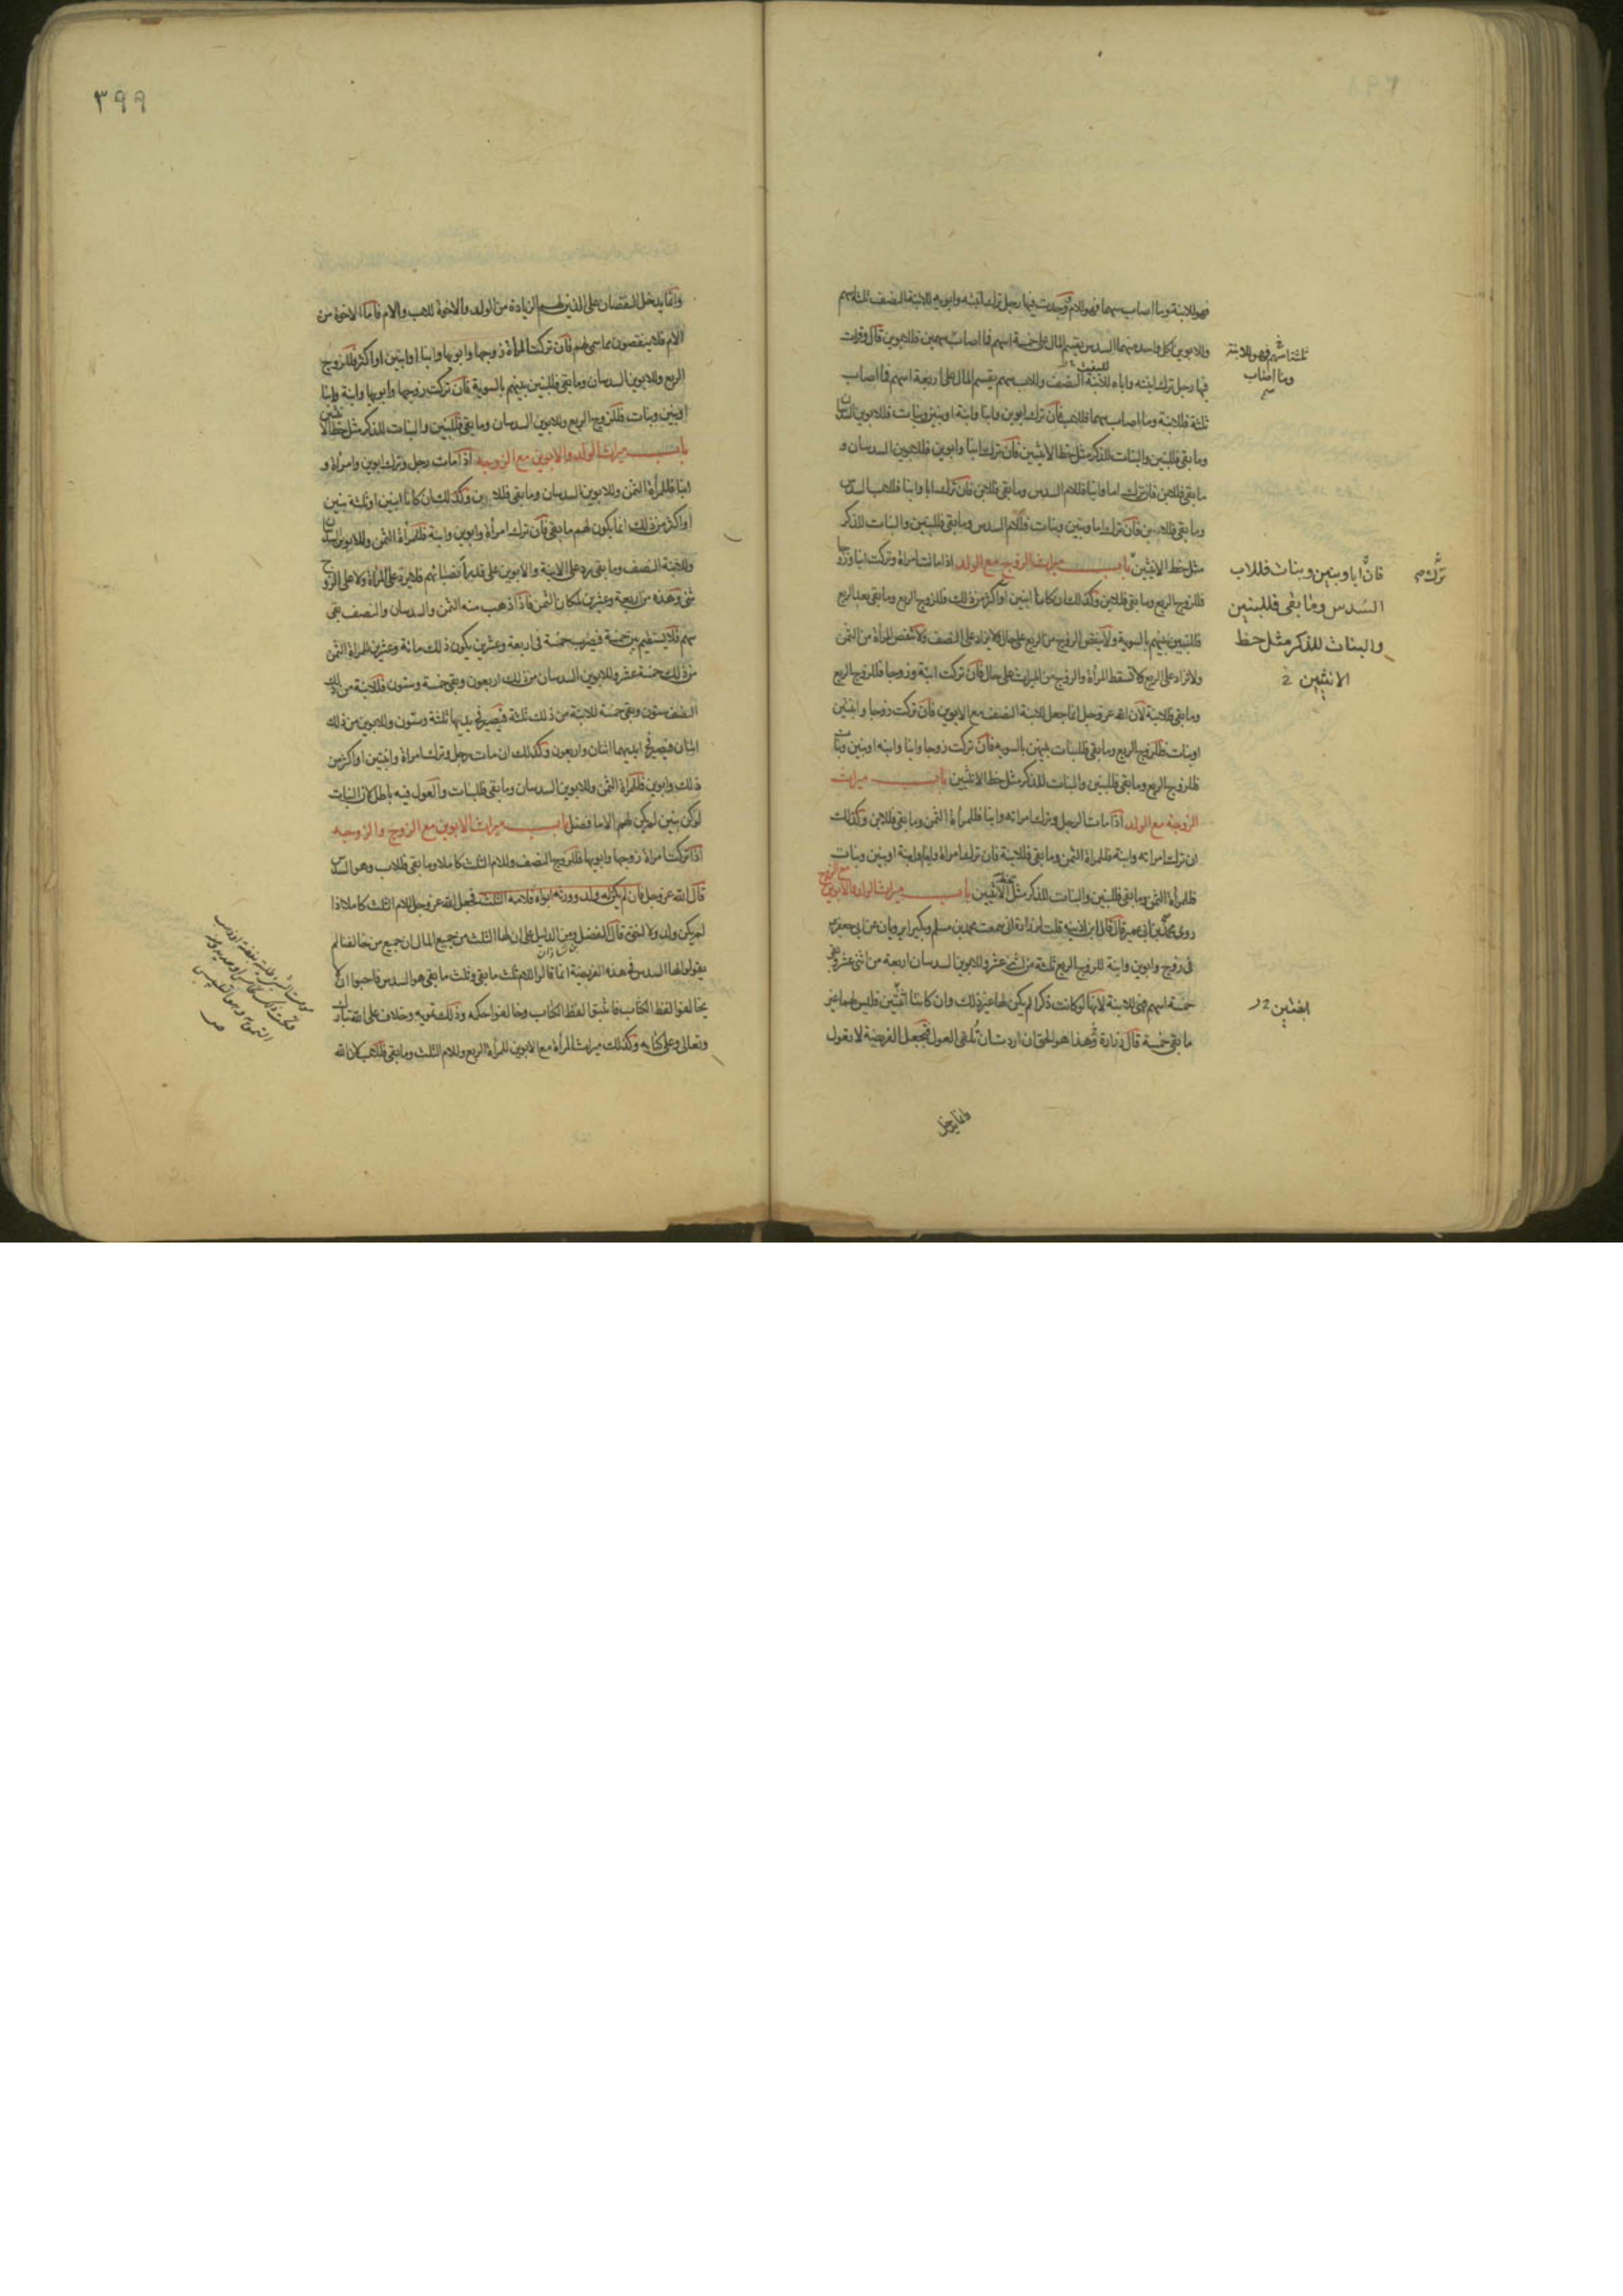 فهو للابنة وما اصاب سهما فهو للام وجدت فيها رجل ترك ابنته وابويه للابنة النصف ثلثة اسهم
وللابوين لكل واحد منهما السدس يقسم المال على خمسة اسهم فما اصاب سهمين فللابوين قال وقرات
ثلثة اسهم فهو للابنة
وما اصاب
فيها رجل ترك ابنته واباه للابنة النصف وللاب سهم يقسم المال على اربعة اسهم فما اصاب
ثلثة فللابنة وما اصاب سهما فللاب فان ترك ابوين وابنا وابنة او بنين وبنات فللابوين السدسان
وما بقى فللبنين والبنات للذكر مثل حظ الانثيين فان ترك ابنا وابوين فللابوين السدسان و
ما بقى فللابن فان ترك اما وابنا فللام السدس وما بقى فللابن فان ترك ابا وابنا فللاب السدس
وما بقى فللابن فان ترك اما وبنين وبنات فللام السدس وما بقى فللبنين والبنات للذكر
مثل حظ الانثيين باب ميراث الزوج مع الولد اذا ماتت امراة وتركت ابنا وزوجا
ترك
فان ابا وبنين وبنات فللاب
السدس وما بقى فللبنين
والبنات للذكر مثل حظ
الانثيين
فللزوج الربع وما بقى فللابن وكذلك ان كانا ابنين او اكثر من ذلك فللزوج الربع وما بقى بعد الربع
فللبنين بينهم بالسوية ولا ينقص الزوج من الربع على حال ولا يزاد على النصف ولا تنقص المرأة من الثمن
ولا تزاد على الربع ولا تسقط المرأة والزوج من الميراث على حال فان تركت ابنة وزوجا فللزوج الربع
وما بقى فللابنة لان الله عز وجل انما جعل للابنة النصف مع الابوين فان تركت زوجا وابنتين
او بنات فللزوج الربع وما بقى فللبنات بينهن بالسوية فان تركت زوجا وابنا وابنة او بنين وبنات
فللزوج الربع وما بقى فللبنين والبنات للذكر مثل حظ الانثيين باب ميراث
الزوجة مع الولد اذا مات الرجل وترك امراته وابنا فللمرأة الثمن وما بقى فللابن وكذلك
ان ترك امراته وابنة فللمراة الثمن وما بقى فللابنة فان ترك امراة وابنا وابنة او بنين وبنات
فللمرأة الثمن وما بقى فللبنين والبنات للذكر مثل حظ الانثيين باب ميراث الولد والابوين مع الزوج
روى محمد بن ابى عمير قال قال ابن اذينه قلت لزرارة انى سمعت محمد بن مسلم وبكيرا يرويان عن ابى جعفر
فى زوج وابوين وابنة للزوج الربع ثلثة من اثنى عشر وللابوين السدسان اربعة من اثنى عشر وبقى
خمسة اسهم فهى للابنة لانها لو كانت ذكرا لم يكن لها غير ذلك وان كانتا اثنتين فليس لهما غير
ابنتين
ما بقى خمسة قال زرارة وهذا هو الحق ان اردت ان تلقى العول فتجعل الفريضة لا تعول
وانما يدخل
٣٩٩
وانما يدخل النقصان على الذين لهم الزيادة من الولد والاخوة للاب والام فاما الاخوة من
الام فلا ينقصون مما سمى لهم فان تركت المرأة زوجها وابويها وابنا او ابنين او اكثر فللزوج
الربع وللابوين السدسان وما بقى فللبنين بينهم بالسوية فان تركت زوجها وابويها وابنة وابنا
او بنين وبنات فللزوج الربع وللابوين السدسان وما بقى فللبنين والبنات للذكر مثل حظ الانثيين
باب ميراث الولد والابوين مع الزوجة اذا مات رجل وترك ابوين وامرأة و
ابنا فللمرأة الثمن وللابوين السدسان وما بقى فللابن وكذلك ان كانا ابنين او ثلثة بنين
او اكثر من ذلك انما يكون لهم ما بقى فان ترك امرأة وابوين وابنة فللمرأة الثمن وللابوين السدسان
وللابنة النصف وما بقى يرد على الابنة والابوين على قدر انصبائهم فلا يرد على المرأة ولا على الزوج
شئ وهذه من اربعة وعشرين لمكان الثمن فاذا ذهب منه الثمن والسدسان والنصف بقى
سهم فلا يستقيم بين خمسة فيضرب خمسة فى اربعة وعشرين يكون ذلك مائة وعشرين للمراة الثمن
من ذلك خمسة عشر وللابوين السدسان من ذلك اربعون وبقى خمسة وستون فللابنة من ذلك
النصف ستون وبقى خمسة للابنة من ذلك ثلثة فيصير فى يديها ثلثة وستون وللابوين من ذلك
اثنان فيصير فى ايديهما اثنان واربعون وكذلك ان مات رجل وترك امراة وابنتين او اكثر من
ذلك وابوين فللمراة الثمن وللابوين السدسان وما بقى فللبنات والعول فيه باطل لان البنات
لو كن بنين لم يكن لهم الا ما فضل باب ميراث الابوين مع الزوج والزوجة
اذا تركت امراة زوجها وابويها فللزوج النصف وللام الثلث كاملا وما بقى فللاب وهو السدس
قال الله عز وجل فان لم يكن له ولد وورثه ابواه فلامه الثلث فجعل الله عز وجل للام الثلث كاملا اذا
لم يكن ولد ولا اخوة قال الفضل ومن الدليل على ان لها الثلث من جميع المال ان جميع من خالفنا لم
بن شاذان
يقولوا لها السدس فى هذه الفريضة انما قالوا للام ثلث ما بقى وثلث ما بقى هو السدس فاحبوا ان لا
يخالفوا لفظ الكتاب فاثبتوا لفظ الكتاب وخالفوا حكمه وذلك تمويه وخلاف على الله تبارك
وتعالى وعلى كتابه وكذلك ميراث المرأة مع الابوين للمرأة الربع وللام الثلث وما بقى فللاب لان الله